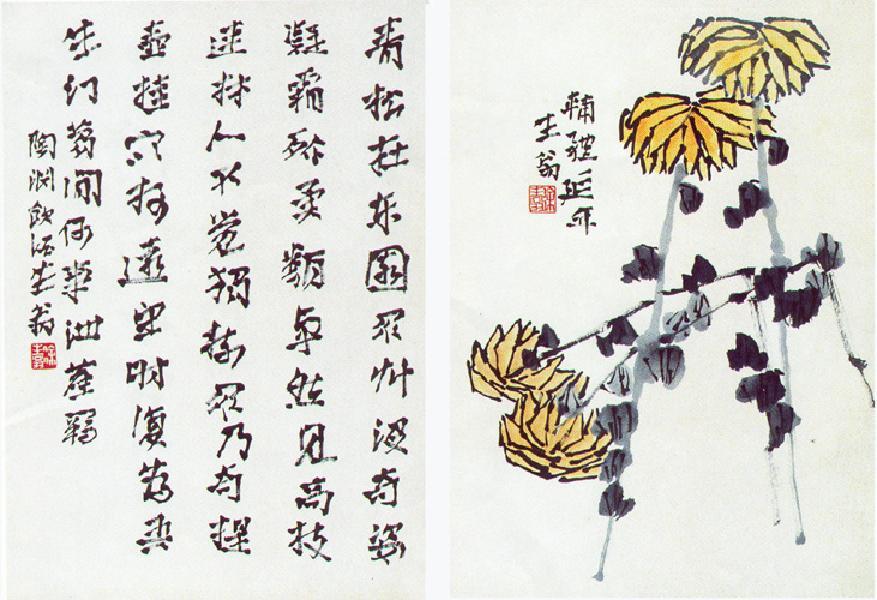 青松在東園眾艸沒奇姿
凝霜殄異類卓然見高枝
連林人不覺獨樹眾乃奇提
壺挂寒柯遠望時復為吾
生幻夢間何事紲塵羈
陶淵飲酒生翁
輔體延年
生翁